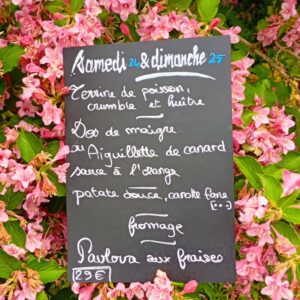 Samedi 24 & dimanche 25
Terrine de poisson,
crumble et huître
Dos de maigre
ou Aiguillette de canard
sauce à l'orange
patate douce, carotte fane
[...]
fromage
Pavlova aux fraises
29€